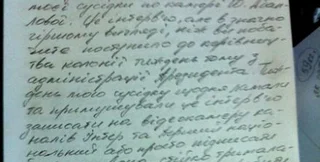 моєї сусідки по камері Ю. Абап
лової. Це інтерв'ю, але в значно
гіршому вигляді, ніж ви поба
чите поступило до керівниц
тва колонії тиждень тому з
адміністрації Президента.
день мою сусідку щодня
та примушували це інтерв'ю
записати на відеокамеру ка
налів Інтер та Перший націо
нальний або просто підписати